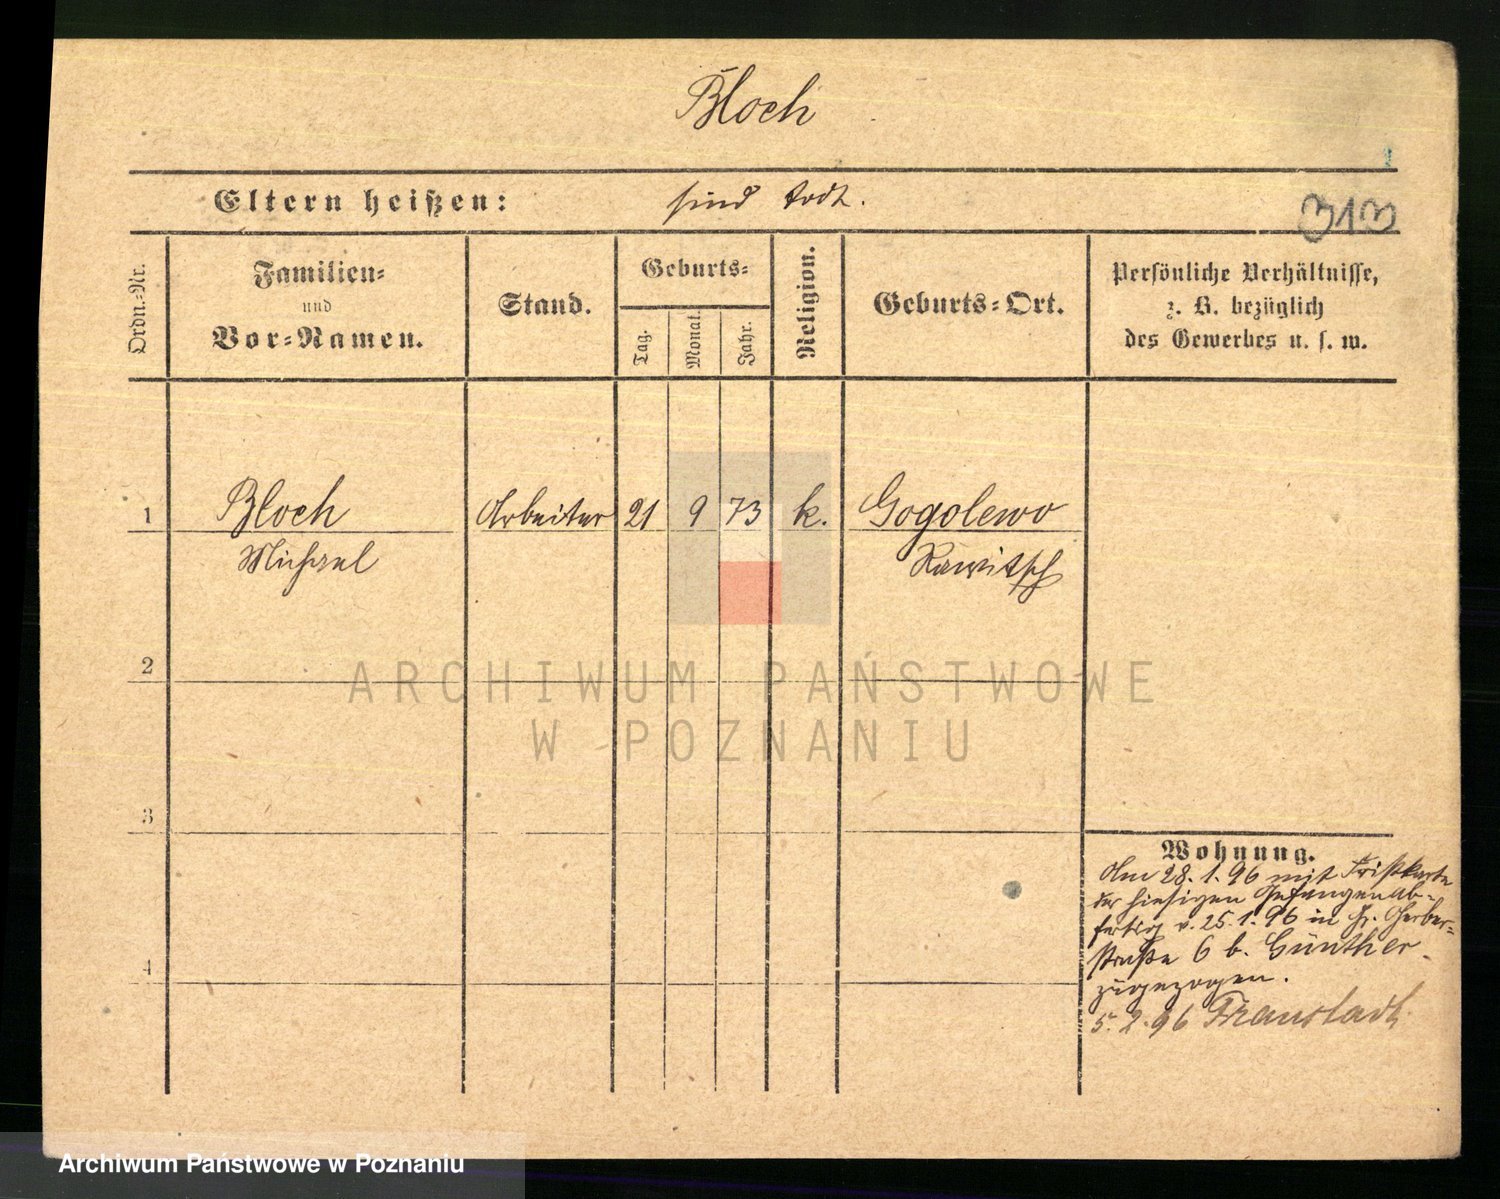 Bloch
1
Eltern heißen: sind todt.
313
Ordn.-Nr.
Familien-
und
Vor-Namen.
Stand.
Geburts-
Tag.
Monat.
Jahr.
Religion.
Geburts-Ort.
Persönliche Verhältnisse,
z. B. bezüglich
des Gewerbes u. s. w.
1 Bloch Arbeiter 21 9 73 k. Gogolewo
Michael Rawitsch
2
ARCHIWUM PAŃSTWOWE
W POZNANIU
3
4
Wohnung.
Am 28.1.96 mit Fristkarte
der hiesigen
v. 25.1.96 in Gr. Gerber-
straße 6 b. Günther
zugezogen.
5.2.96 Fraustadt.
Archiwum Państwowe w Poznaniu